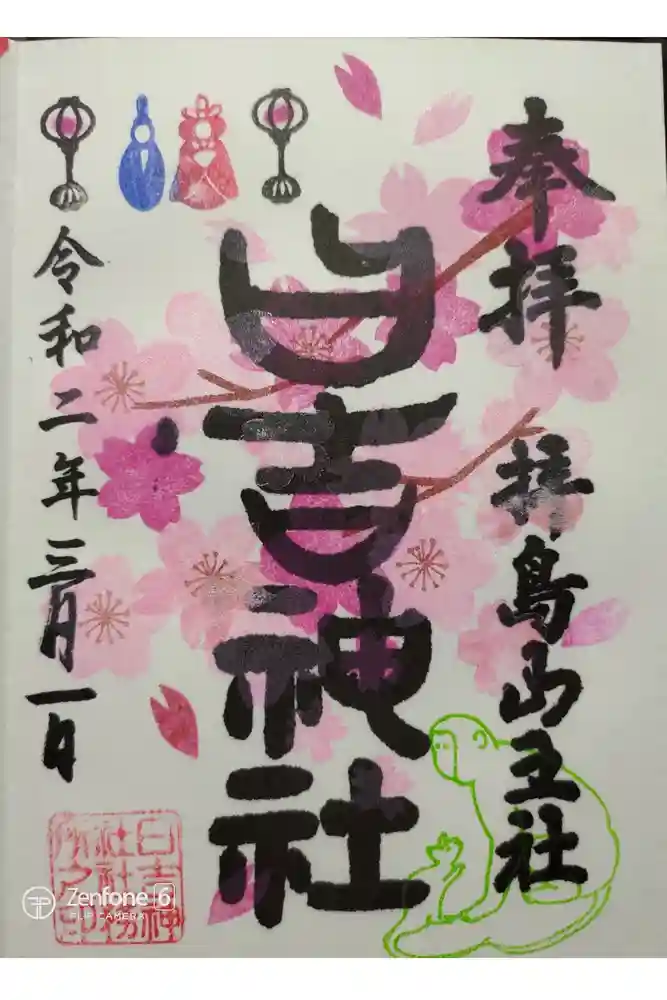 奉拝
拝島山王社
日吉神社
令和二年三月一日
日吉神
社社務
所之印
Zenfone 6
FLIP CAMERA